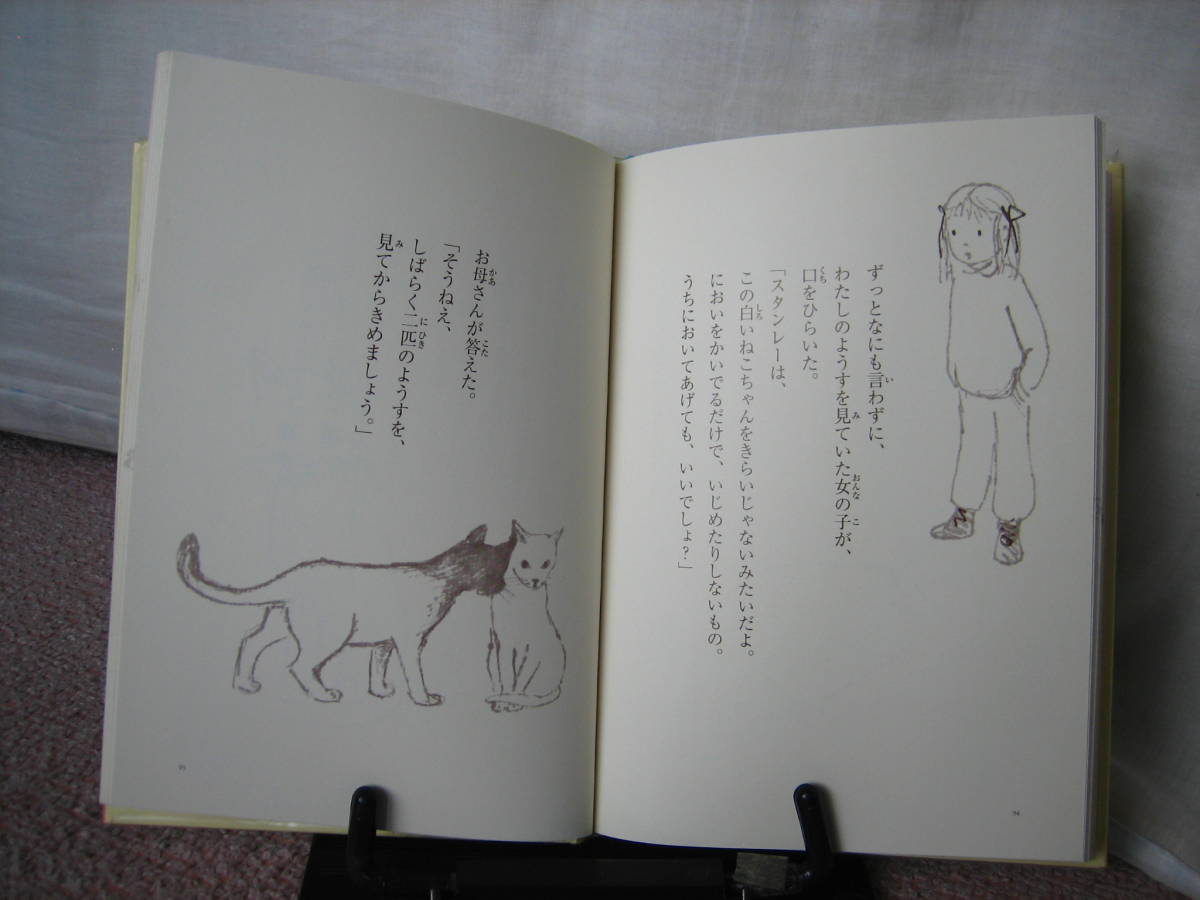 ずっとなにも言わずに、
わたしのようすを見ていた女の子が、
口をひらいた。
「スタンレーは、
この白いねこちゃんをきらいじゃないみたいだよ。
においをかいでるだけで、いじめたりしないもの。
うちにおいてあげても、いいでしょ？」
94
お母さんが答えた。
「そうねえ、
しばらく二匹のようすを、
見てからきめましょう。」
95